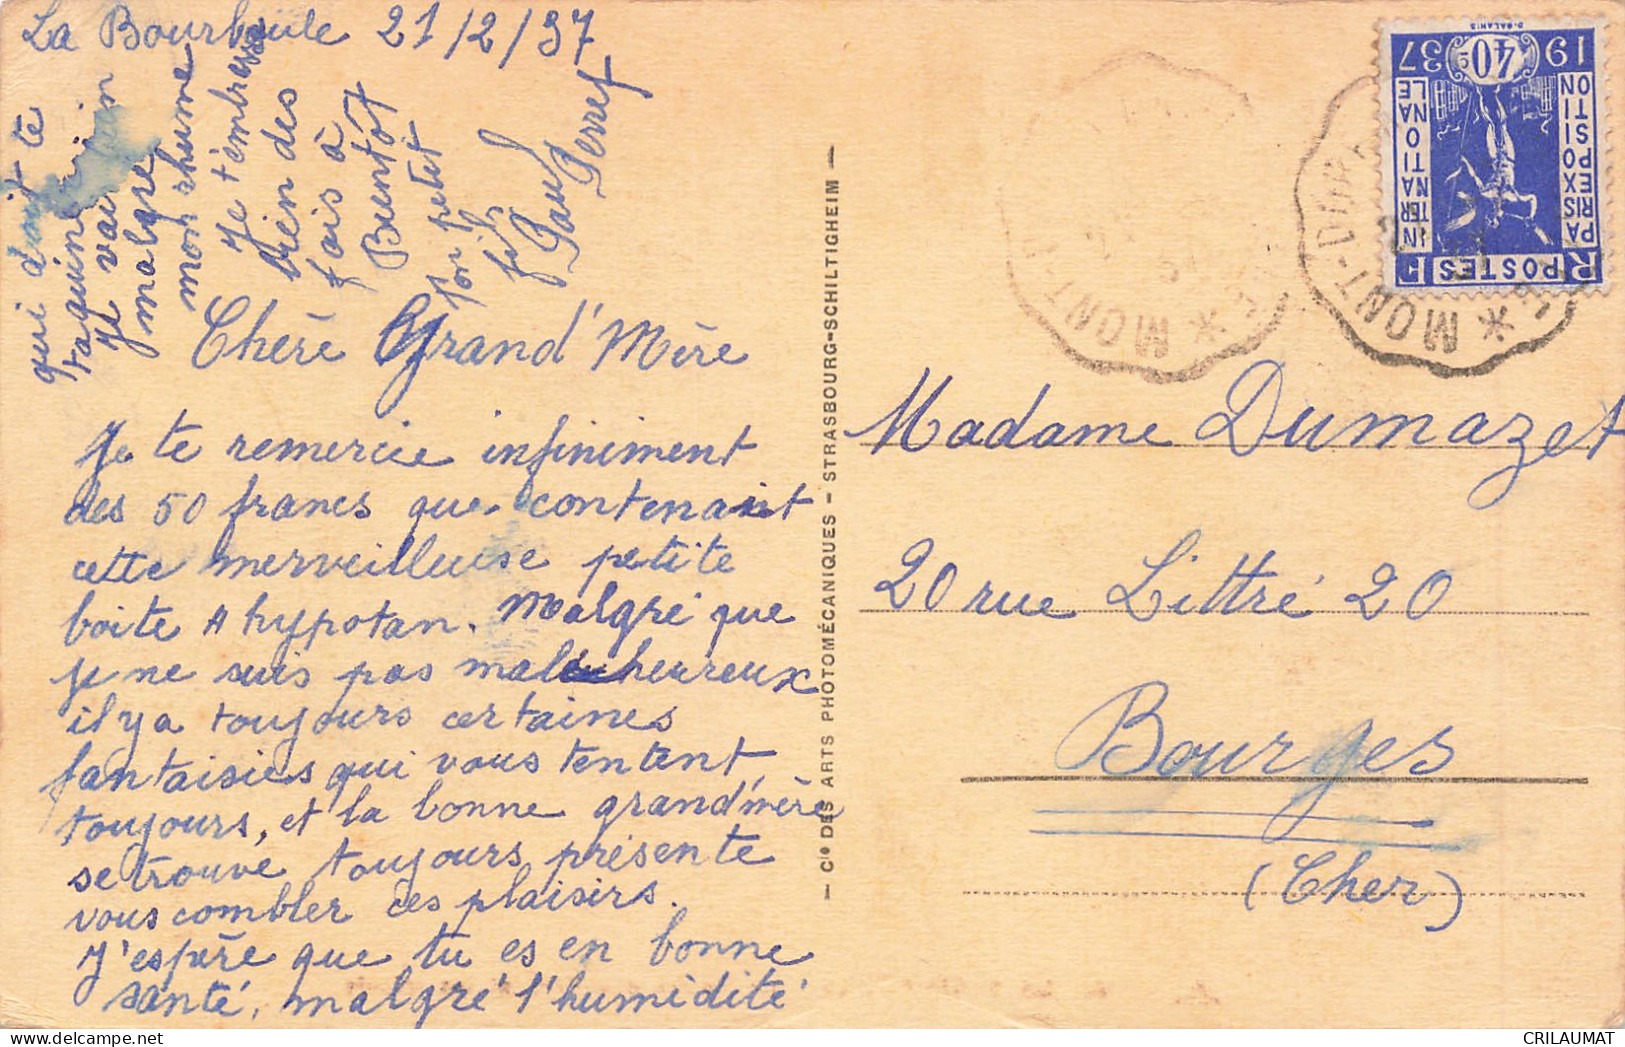 La Bourboule 21/2/37
Chère Grand'Mère
Je te remercie infiniment
des 50 francs que contenait
cette merveilleuse petite
boite A hypotan. Malgré que
je ne suis pas malheureux
il y a toujours certaines
fantaisies qui vous tentent
toujours, et la bonne grand'mère
se trouve toujours présente
vous combler ces plaisirs.
J'espère que tu es en bonne
santé, malgré l'humidité
qui doit te
taquiner
je vais bien
malgré
mon rhume
Je t'embrasse
bien des
fois à
Bientôt
ton petit
fils
Paul Perret
— Cie DES ARTS PHOTOMÉCANIQUES – STRASBOURG-SCHILTIGHEIM —
Madame Dumazet
20 rue Littré 20
Bourges
(Cher)
RF POSTES
PARIS EXPOSITION
INTERNATIONALE
1937
40c
MONT-D
MONT-DORE
CRILAUMAT